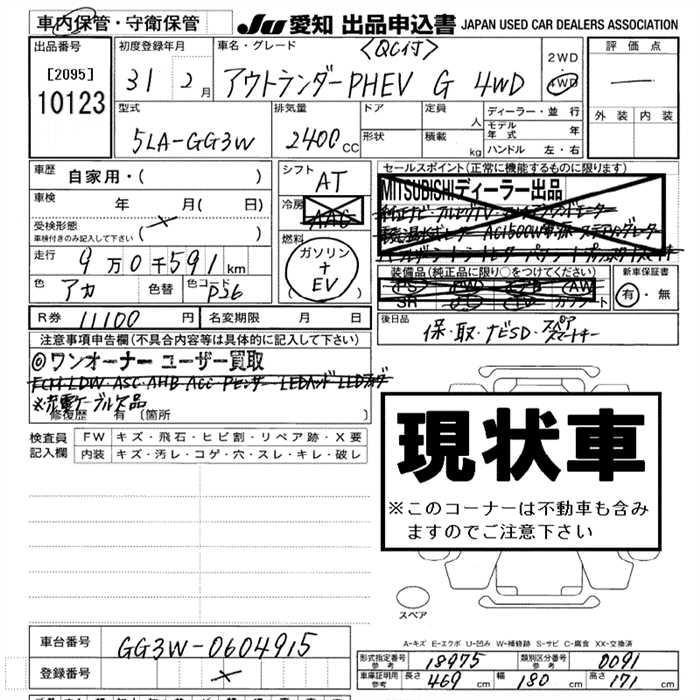 車内保管・守衛保管
JU 愛知 出品申込書 JAPAN USED CAR DEALERS ASSOCIATION
出品番号
[2095]
10123
初度登録年月
31 2月
車名・グレード
<QC付>
アウトランダーPHEV G 4WD
2WD
4WD
評価点
—
外装 内装
型式
5LA-GG3W
排気量
2400cc
ドア
形状
定員
人
積載
kg
ディーラー・並行
モデル年式 年
ハンドル 左・右
車歴
自家用・( )
車検
年 月( 日)
受検形態
車検付きのみ記入して下さい
走行
9万0千591km
色
アカ
色替
色コード
P26
シフト
AT
冷房
AAC
燃料
ガソリン
+
EV
セールスポイント(正常に機能するものに限ります)
MITSUBISHIディーラー出品
装備品(純正品に限り○をつけてください)
PS PW エアB AW
SR カワ TV カワシート
新車保証書
有・無
R券 11100円
名変期限 月 日
後日品
保・取・ナビSD・スペアスマートキー
注意事項申告欄(不具合内容等は具体的に記入して下さい)
◎ワンオーナー ユーザー買取
FCM・LDW・ASC・AHB・ACC・Pセンサー・LEDヘッド・LEDフォグ
※充電ケーブル欠品
修復歴 有 〔箇所
検査員記入欄
FW キズ・飛石・ヒビ割・リペア跡・X要
内装 キズ・汚レ・コゲ・穴・スレ・キレ・破レ
現状車
※このコーナーは不動車も含みますのでご注意下さい
スペア
A-キズ E-エクボ U-凹み W-補修跡 S-サビ C-腐食 XX-交換済
車台番号
GG3W-0604915
登録番号
形式指定番号 参考 18975
類別区分番号 参考 0091
車庫証明用 参考 長さ 469cm 幅 180cm 高さ 171cm